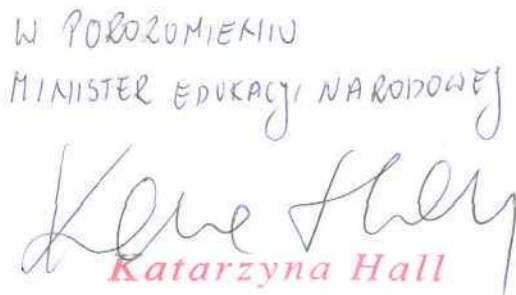 W POROZUMIENIU
MINISTER EDUKACJI NARODOWEJ
Katarzyna Hall